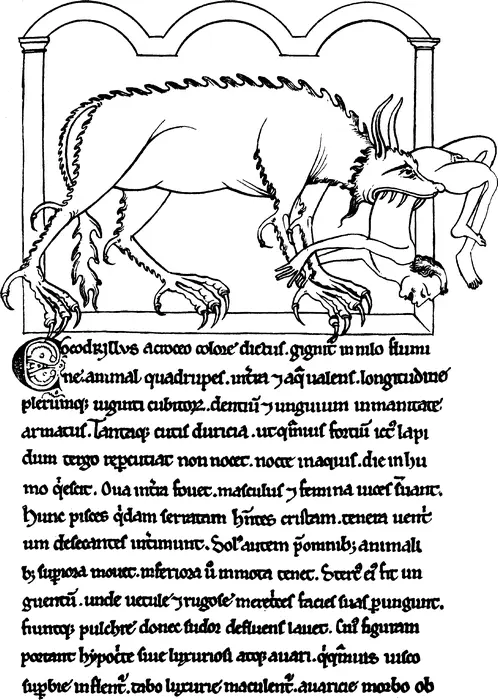 Cocodrillus a croceo colore dictus. gignit̛ in nilo flumi
ne. animal quadrupes. in t̛ra ⁊ aq̃ ualens. longitudine
plerumq; uiginti cubitoꝝ. dentiũ ⁊ unguium inmanitate
armatus. Tantaq; cutis duricia. ut qͣmuis fortiũ icꝰ lapi
dum tergo repercutiat non nocet. nocte in aquis. die in hu
mo qͥescit. Oua in t̛ra fouet. masculus ⁊ femina uices seruant.
Hunc pisces qͥdam serratam hñtes cristam. tenera uent̛
um desecantes int̛imunt. Solꝰ autem p̃ omnib; animali
b; suꝑiora mouet. inferiora ũ inmota tenet. Stercꝰ eiꝰ fit un
guentũ. unde uetule ⁊ rugose meret̛ces facies suas ꝑungunt.
fiuntq; pulchre donec sudor defluens lauet. Cuiꝰ figuram
portant hypoc̛te siue luxuriosi atq; auari. qͥ qͣmuis uisco
suꝑbie inflent̛. tabo luxurie maculent̛. auaricie morbo ob